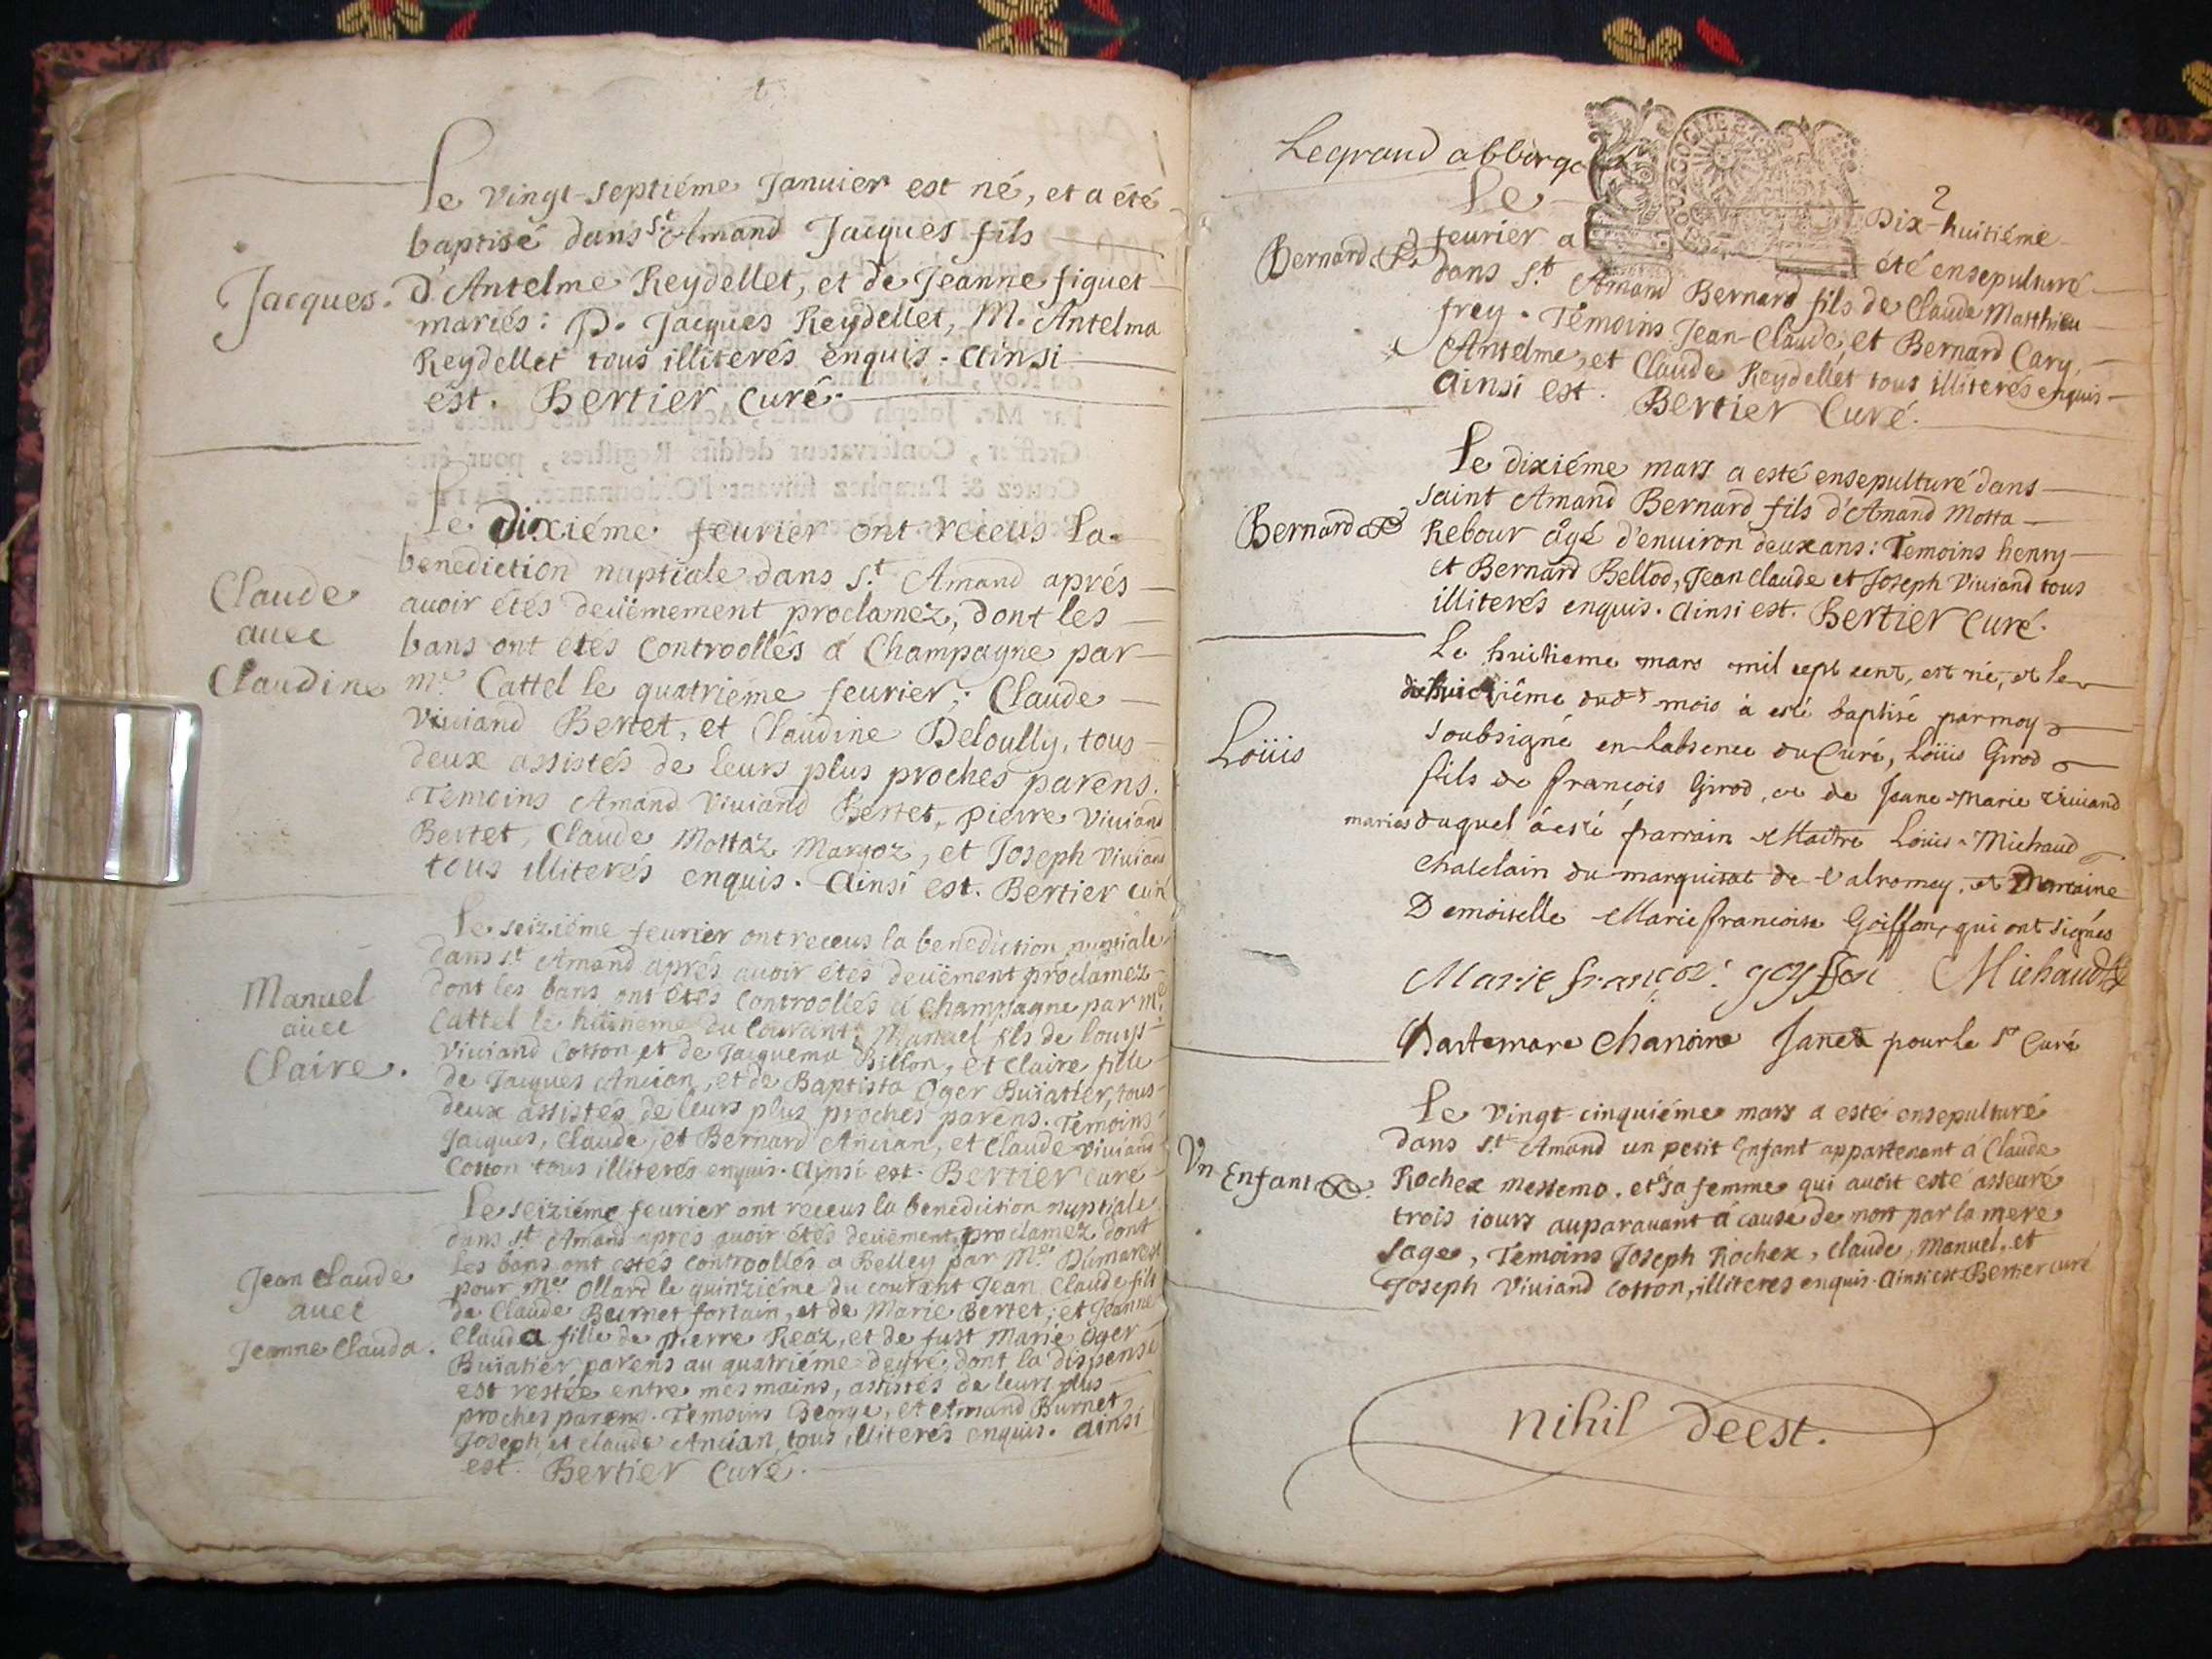 Le vingt-septiéme Januier est né, et a été
baptisé dans St Amand Jacques fils
Jacques. d'Antelme Reydellet, et de Jeanne figuet
mariés: P. Jacques Reydellet, M. Antelma
Reydellet tous illiterés enquis. Ainsi
est. Bertier Curé.
Le dixiéme feurier ont receus la
benediction nuptiale dans St Amand aprés
Claude auoir étés deüemement proclamez, dont les
auec bans ont étés controollés á Champagne par
Claudine me Cattel le quatrieme feurier; Claude
Viuiand Bertet, et Claudine Deloully, tous
deux assistés de leurs plus proches parens.
Temoins Amand Viuiand Bertet, pierre Viuiand
Bertet, Claude Mottaz Margoz, et Joseph Viuiand
tous illiterés enquis. Ainsi est. Bertier curé
Le seiziéme feurier ont receus la benediction nuptiale
dans St Amand aprés auoir étés deüement proclamez
Manuel dont les bans ont étés controollés á Champagne par me
auec Cattel le huitieme du courant; Manuel fils de Louys
Claire. Viuiand Cotton et de Jacquema Billon, et Claire fille
de Jacques Ancian, et de Baptista Oger Buiatier, tous
deux assistés de leurs plus proches parens. Témoins
Jacques, Claude, et Bernard Ancian, et Claude Viuiand
Cotton tous illiterés enquis. Ainsi est. Bertier curé
Le seiziéme feurier ont receus la benediction nuptiale
dans St Amand aprés auoir étés deüement proclamez dont
les bans ont estés controollés a Belley par Me Dumarest
Jean claude pour Me Ollard le quinziéme du courant Jean Claude fils
auec de Claude Burnet fortain, et de Marie Bertet; et Jeanne
Jeanne Clauda. Clauda fille de pierre Reaz, et de fust Marie Oger
Buiatier parens au quatriéme degré, dont la dispense
est restée entre mes mains, assistés de leurs plus
proches parens. Temoins George, et Amand Burnet,
Joseph et claude Ancian tous illiterés enquis. Ainsi
est. Bertier Curé.
Legrand abberge
2
Le Dix-huitiéme
Bernard feurier a été ensepulturé
dans St Amand Bernard fils de Claude Matthieu
frey. Témoins Jean-Claude, et Bernard Cary,
Antelme, et Claude Reydellet tous illiterés enquis
ainsi est. Bertier Curé.
Le dixiéme mars a esté ensepulturé dans
saint Amand Bernard fils d'Amand Motta
Bernard Rebour âgé d'enuiron deux ans: Temoins henry
et Bernard Bellod, Jean claude et Joseph Viuiand tous
illiterés enquis. ainsi est. Bertier curé.
Le huitieme mars mil sept cent, est né, et le
dixhuictiéme dudt mois à esté baptisé par moy
Loüis soubsigné en labsence du Curé, Loüis Girod
fils de françois Girod, et de Jeane-Marie Viuiand
mariés duquel á esté parrain Maitre Loüis Michaud
Chatelain du marquisat de Valromey, et Maraine
Demoiselle Marie francoise Goiffon, qui ont signés
Marie françoi. goyffon Michaud
Dartemare Chanoine Janet pour le Sr Curé
Le vingt-cinquiéme mars a esté ensepulturé
dans St Amand un petit Enfant appartenant á Claude
Vn Enfant Rochex messemo, et á sa femme qui auoit esté asseuré
trois iours auparauant á cause de mort par la mere
sage, Temoins Joseph Rochex, Claude, Manuel, et
Joseph Viuiand Cotton, illiteres enquis. Ainsi est Bertier curé
nihil deest.